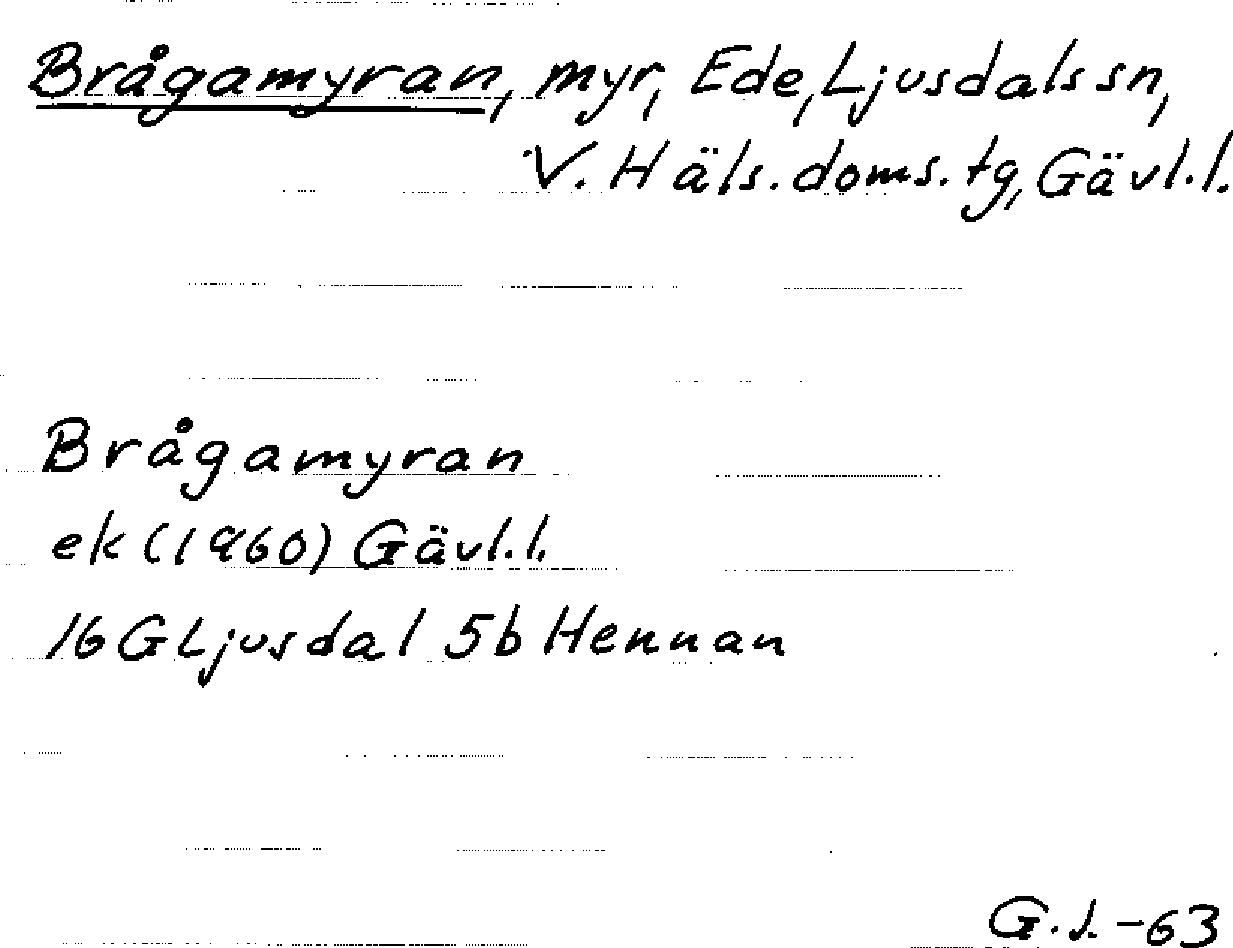 Brågamyran, myr, Ede, Ljusdals sn,
V. Häls. doms. tg, Gävl. l.
Brågamyran
ek (1960) Gävl. l.
16 G Ljusdal 5b Hennan
G. J. -63